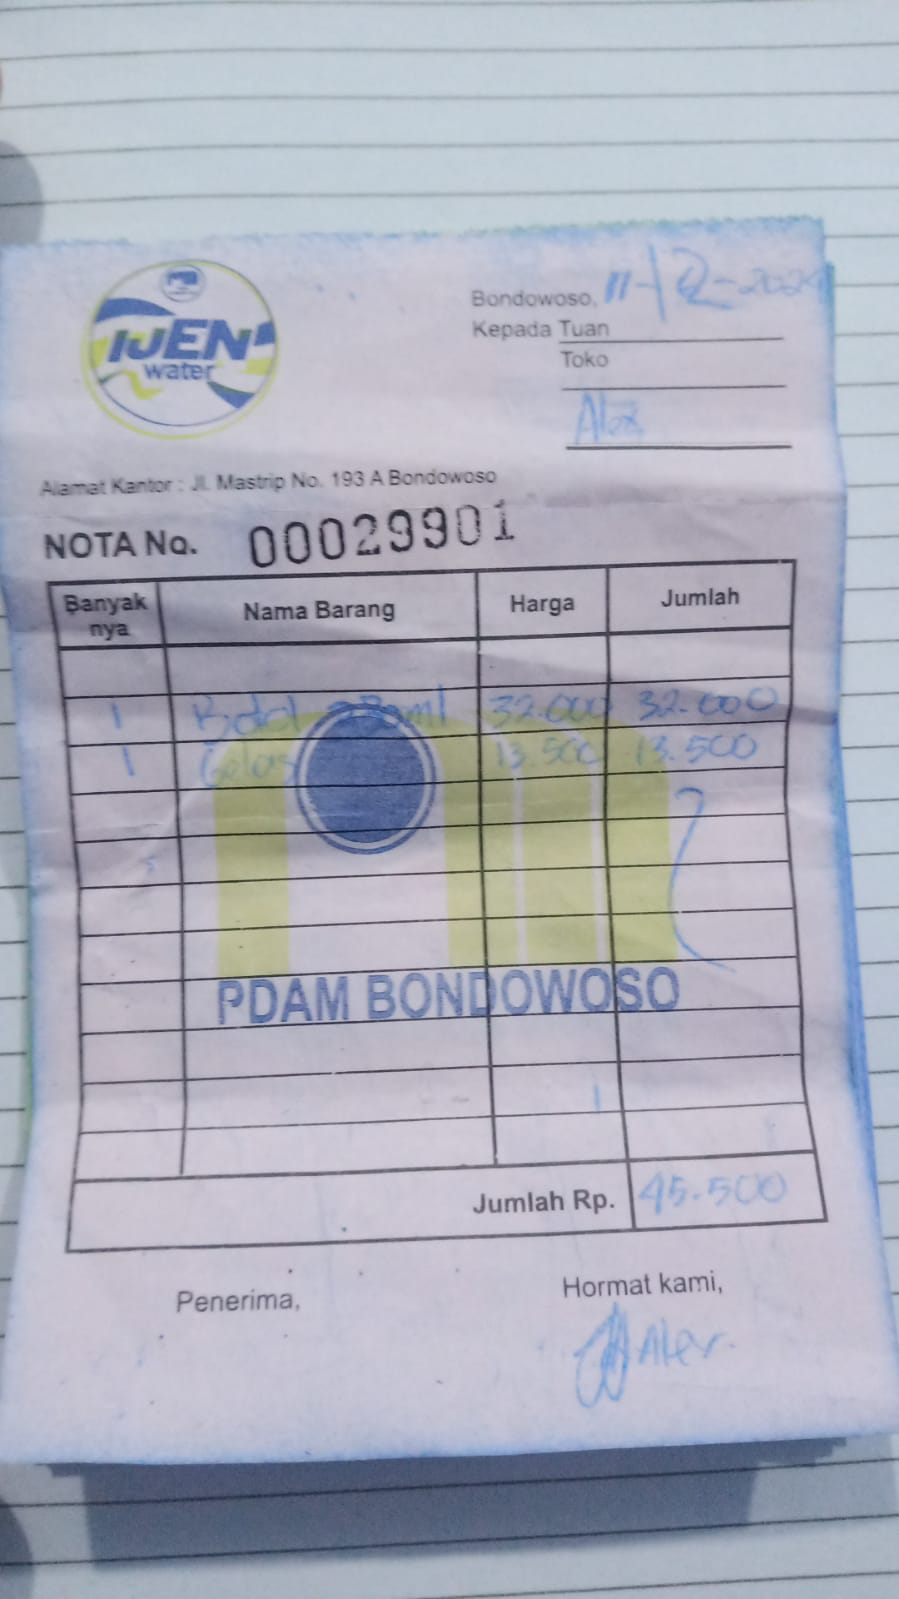 IJEN
water
Bondowoso, 11-12-2024
Kepada Tuan
Toko
Alamat Kantor : Jl. Mastrip No. 193 A Bondowoso
NOTA No. 00029901
Banyak nya Nama Barang Harga Jumlah
1 Botol ml 32.000 32.000
1 Gelas 13.500 13.500
PDAM BONDOWOSO
Jumlah Rp. 45.500
Penerima, Hormat kami,